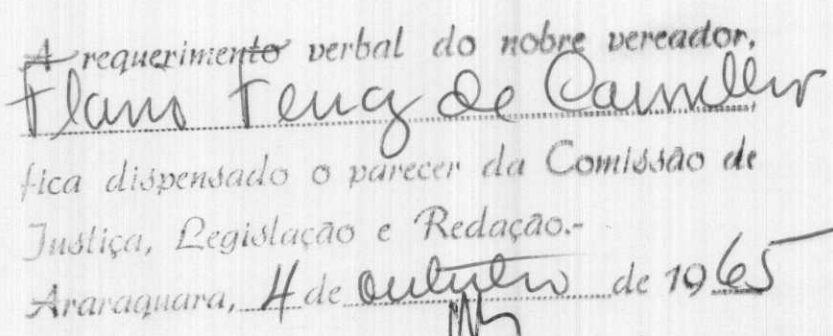 A requerimento verbal do nobre vereador,
Flavio Ferraz de Carvalho
fica dispensado o parecer da Comissão de
Justiça, Legislação e Redação.-
Araraquara, 4 de outubro de 1965